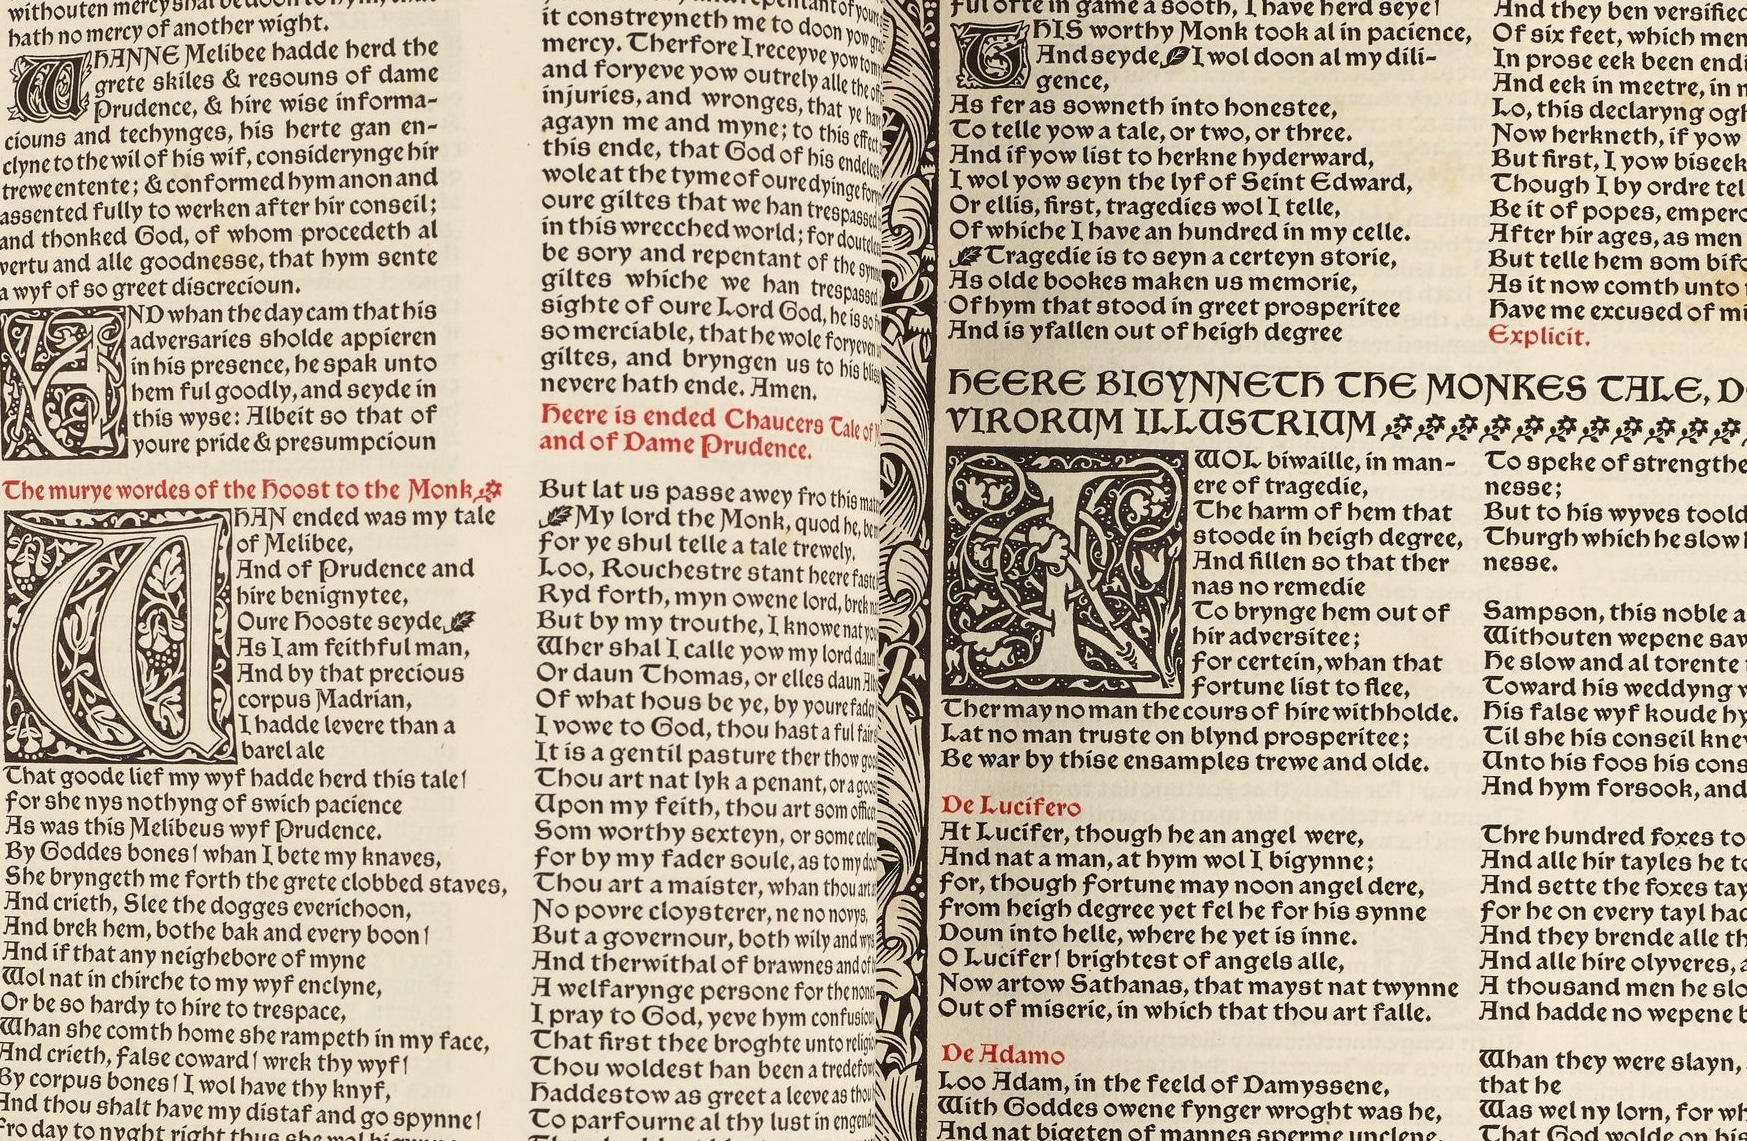 withouten mercy shal be doon to hym, that
hath no mercy of another wight.
WHANNE Melibee hadde herd the
grete skiles & resouns of dame
Prudence, & hire wise informa-
ciouns and techynges, his herte gan en-
clyne to the wil of his wif, considerynge hir
trewe entente; & conformed hym anon and
assented fully to werken after hir conseil;
and thonked God, of whom procedeth al
vertu and alle goodnesse, that hym sente
a wyf of so greet discrecioun.
AND whan the day cam that his
adversaries sholde appieren
in his presence, he spak unto
hem ful goodly, and seyde in
this wyse: Albeit so that of
youre pride & presumpcioun
The murye wordes of the Hoost to the Monk
WHAN ended was my tale
of Melibee,
And of Prudence and
hire benignytee,
Oure Hooste seyde,
As I am feithful man,
And by that precious
corpus Madrian,
I hadde levere than a
barel ale
That goode lief my wyf hadde herd this tale!
For she nys nothyng of swich pacience
As was this Melibeus wyf Prudence.
By Goddes bones! whan I bete my knaves,
She bryngeth me forth the grete clobbed staves,
And crieth, Slee the dogges everichoon,
And brek hem, bothe bak and every boon!
And if that any neighebore of myne
Wol nat in chirche to my wyf enclyne,
Or be so hardy to hire to trespace,
Whan she comth home she rampeth in my face,
And crieth, False coward! wrek thy wyf!
By corpus bones! I wol have thy knyf,
And thou shalt have my distaf and go spynne!
Fro day to nyght right thus she wol
it constreyneth me to doon yow
mercy. Therfore I receyve yow to my
and foryeve yow outrely alle the
injuries, and wronges, that ye
agayn me and myne; to this effect
this ende, that God of his endelees
wole at the tyme of oure dyinge
oure giltes that we han trespassed
in this wrecched world; for doutelees
be sory and repentant of the
giltes whiche we han trespassed
sighte of oure Lord God, he is so
so merciable, that he wole foryeven
giltes, and bryngen us to his
nevere hath ende. Amen.
Heere is ended Chaucers Tale of
and of Dame Prudence.
But lat us passe awey fro this
My lord the Monk, quod he,
For ye shul telle a tale trewely.
Loo, Rouchestre stant heere faste
Ryd forth, myn owene lord, brek
But by my trouthe, I knowe nat
Wher shal I calle yow my lord daun
Or daun Thomas, or elles daun
Of what hous be ye, by youre fader
I vowe to God, thou hast a ful fair
It is a gentil pasture ther thow
Thou art nat lyk a penant, or a
Upon my feith, thou art som officer
Som worthy sexteyn, or some
For by my fader soule, as to my
Thou art a maister, whan thou art
No povre cloysterer, ne no novys,
But a governour, both wily and wys
And therwithal of brawnes and of
A welfarynge persone for the nones
I pray to God, yeve hym confusioun
That first thee broghte unto religioun
Thou woldest han been a tredefowel
Haddestow as greet a leeve as thou
To parfourne al thy lust in
ful ofte in game a sooth, I have herd seye!
THIS worthy Monk took al in pacience,
And seyde, I wol doon al my dili-
gence,
As fer as sowneth into honestee,
To telle yow a tale, or two, or three.
And if yow list to herkne hyderward,
I wol yow seyn the lyf of Seint Edward,
Or ellis, first, tragedies wol I telle,
Of whiche I have an hundred in my celle.
Tragedie is to seyn a certeyn storie,
As olde bookes maken us memorie,
Of hym that stood in greet prosperitee
And is yfallen out of heigh degree
And they ben versified
Of six feet, which men
In prose eek been
And eek in meetre, in
Lo, this declaryng
Now herkneth, if yow
But first, I yow biseek
Though I by ordre
Be it of popes,
After hir ages, as men
But telle hem som
As it now comth unto
Have me excused of
Explicit.
HEERE BIGYNNETH THE MONKES TALE,
VIRORUM ILLUSTRIUM
I WOL biwaille, in man-
ere of tragedie,
The harm of hem that
stoode in heigh degree,
And fillen so that ther
nas no remedie
To brynge hem out of
hir adversitee;
For certein, whan that
Fortune list to flee,
Ther may no man the cours of hire withholde.
Lat no man truste on blynd prosperitee;
Be war by thise ensamples trewe and olde.
De Lucifero
At Lucifer, though he an angel were,
And nat a man, at hym wol I bigynne;
For, though Fortune may noon angel dere,
From heigh degree yet fel he for his synne
Doun into helle, where he yet is inne.
O Lucifer! brightest of angels alle,
Now artow Sathanas, that mayst nat twynne
Out of miserie, in which that thou art falle.
De Adamo
Loo Adam, in the feeld of Damyssene,
With Goddes owene fynger wroght was he,
And nat bigeten of mannes sperme unclene,
To speke of strengthe
nesse;
But to his wyves toold
Thurgh which he slow
nesse.
Sampson, this noble
Withouten wepene
He slow and al torente
Toward his weddyng
His false wyf koude
Til she his conseil
Unto his foos his
And hym forsook, and
Thre hundred foxes
And alle hir tayles he
And sette the foxes
For he on every tayl
And they brende alle
And alle hire olyveres,
A thousand men he
And hadde no wepene
Whan they were slayn,
that he
Was wel ny lorn, for
That God wolde on